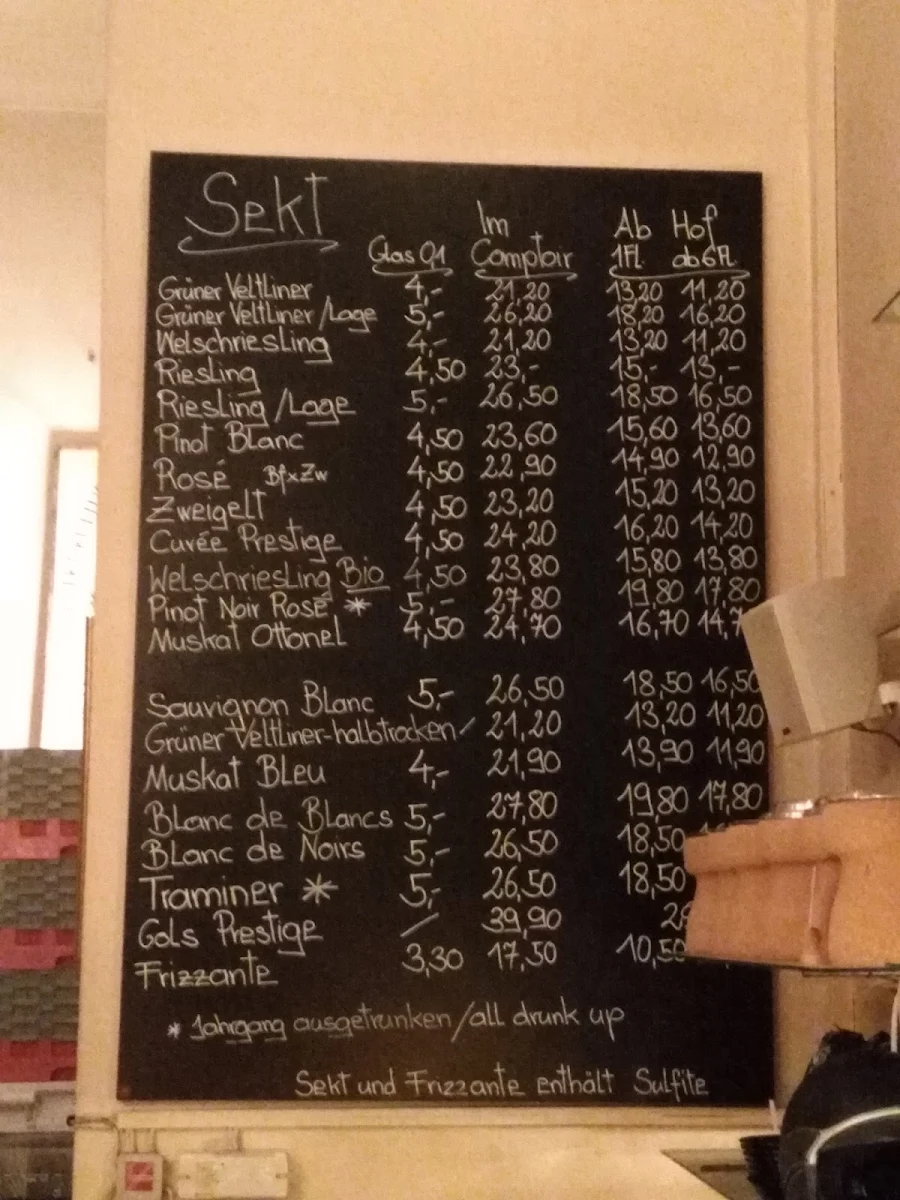 Sekt
Im Ab Hof
Glas 0,1 Comptoir 1Fl. ab 6Fl.
Grüner Veltliner 4,- 21,20 13,20 11,20
Grüner Veltliner/Lage 5,- 26,20 18,20 16,20
Welschriesling 4,- 21,20 13,20 11,20
Riesling 4,50 23,- 15,- 13,-
Riesling/Lage 5,- 26,50 18,50 16,50
Pinot Blanc 4,50 23,60 15,60 13,60
Rosé BfxZw 4,50 22,90 14,90 12,90
Zweigelt 4,50 23,20 15,20 13,20
Cuvée Prestige 4,50 24,20 16,20 14,20
Welschriesling Bio 4,50 23,80 15,80 13,80
Pinot Noir Rosé * 5,- 27,80 19,80 17,80
Muskat Ottonel 4,50 24,70 16,70 14,7
Sauvignon Blanc 5,- 26,50 18,50 16,50
Grüner Veltliner-halbtrocken / 21,20 13,20 11,20
Muskat Bleu 4,- 21,90 13,90 11,90
Blanc de Blancs 5,- 27,80 19,80 17,80
Blanc de Noirs 5,- 26,50 18,50
Traminer * 5,- 26,50 18,50
Gols Prestige / 39,90
Frizzante 3,30 17,50 10,50
* Jahrgang ausgetrunken/all drunk up
Sekt und Frizzante enthält Sulfite